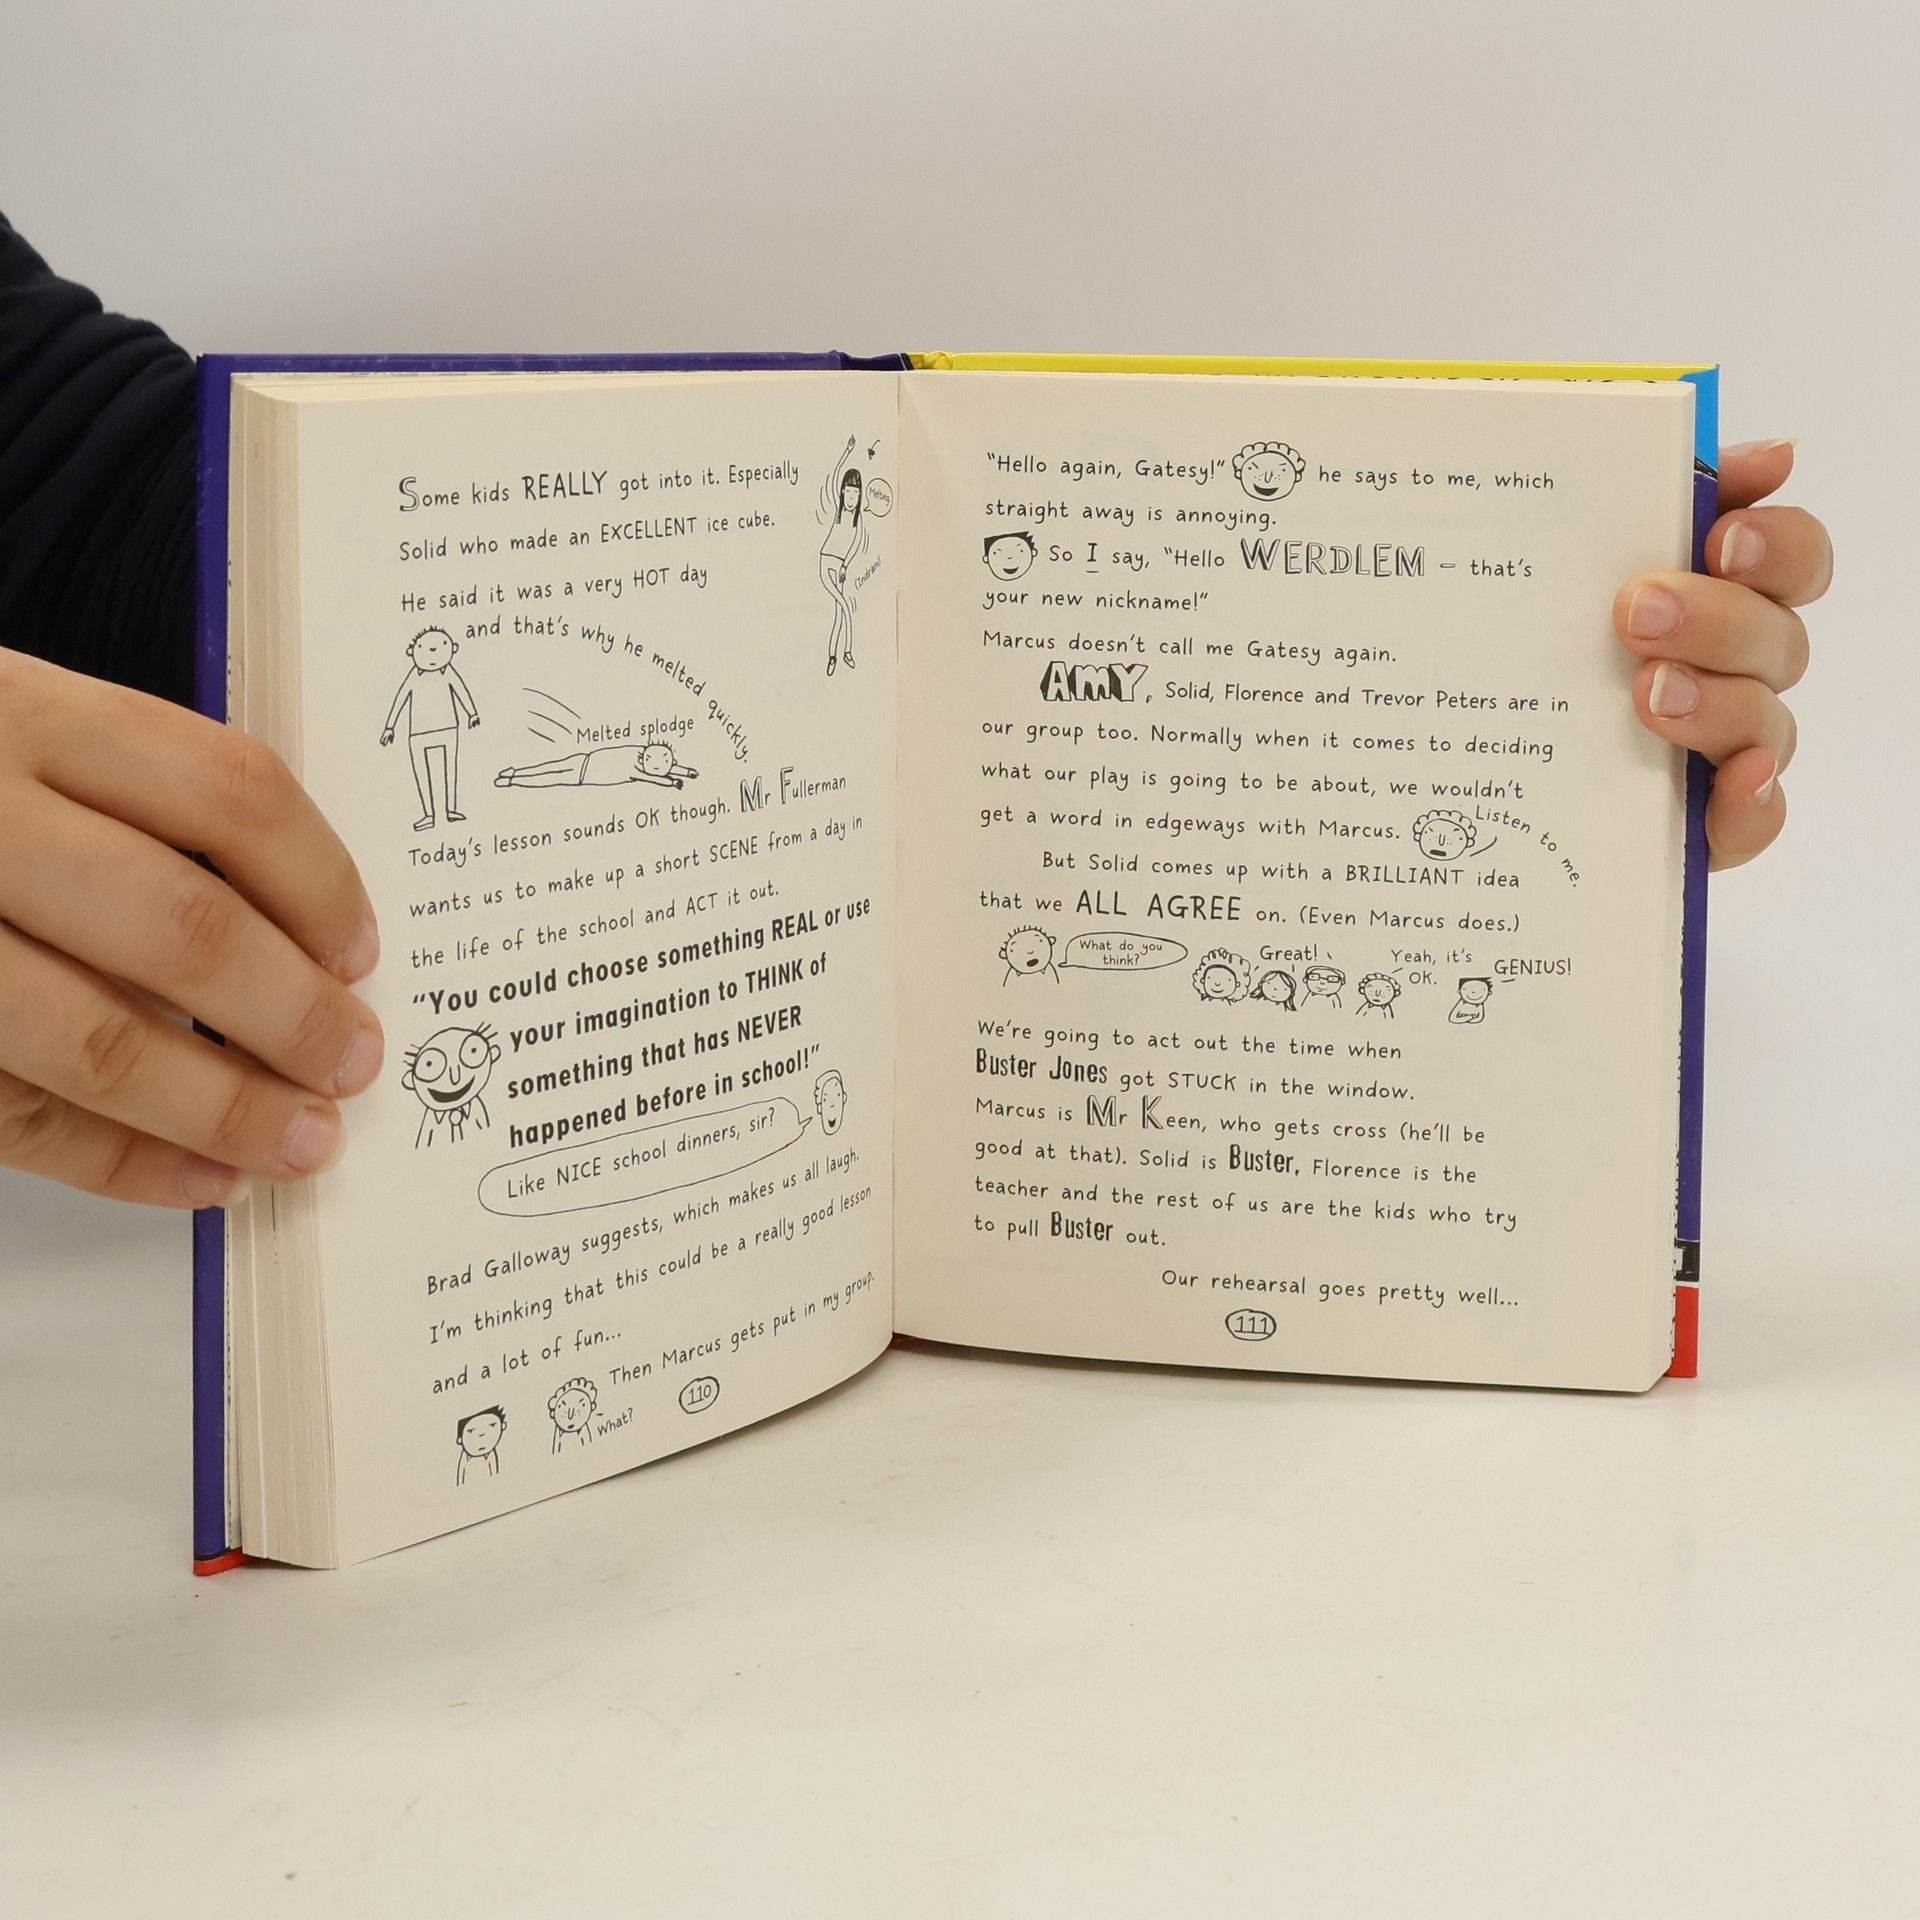 Some kids REALLY got into it. Especially
Solid who made an EXCELLENT ice cube.
Melting
(Indrani)
He said it was a very HOT day
and that's why he melted quickly.
Melted splodge
Today's lesson sounds OK though. Mr Fullerman
wants us to make up a short SCENE from a day in
the life of the school and ACT it out.
"You could choose something REAL or use
your imagination to THINK of
something that has NEVER
happened before in school!"
Like NICE school dinners, sir?
Brad Galloway suggests, which makes us all laugh.
I'm thinking that this could be a really good lesson
and a lot of fun...
Then Marcus gets put in my group.
What?
110
"Hello again, Gatesy!" he says to me, which
straight away is annoying.
So I say, "Hello WERDLEM – that's
your new nickname!"
Marcus doesn't call me Gatesy again.
AMY, Solid, Florence and Trevor Peters are in
our group too. Normally when it comes to deciding
what our play is going to be about, we wouldn't
get a word in edgeways with Marcus.
Listen to me.
But Solid comes up with a BRILLIANT idea
that we ALL AGREE on. (Even Marcus does.)
What do you
think?
Great!
Yeah, it's
OK.
GENIUS!
We're going to act out the time when
Buster Jones got STUCK in the window.
Marcus is Mr Keen, who gets cross (he'll be
good at that). Solid is Buster, Florence is the
teacher and the rest of us are the kids who try
to pull Buster out.
Our rehearsal goes pretty well...
111